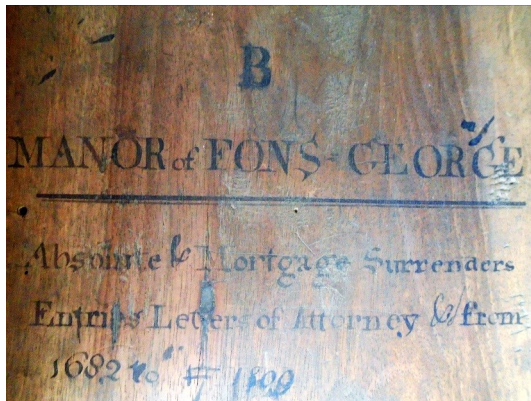 B
MANOR of FONS=GEORGE
Absolute & Mortgage Surrenders
Entries Letters of Attorney &c from
1682 to 1800